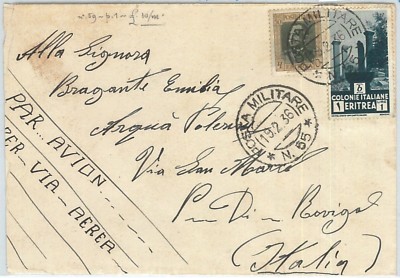 POSTA MILITARE
19.2.36
N. 55
COLONIE ITALIANE
1 ERITREA 1
Alla Signora
Bragante Emilia
Arquà Polesine
Via San Marco
P-Di-Rovigo
(Italia)
POSTA MILITARE
19.2.36
* N. 55 *
PAR AVION
PER-VIA-AEREA